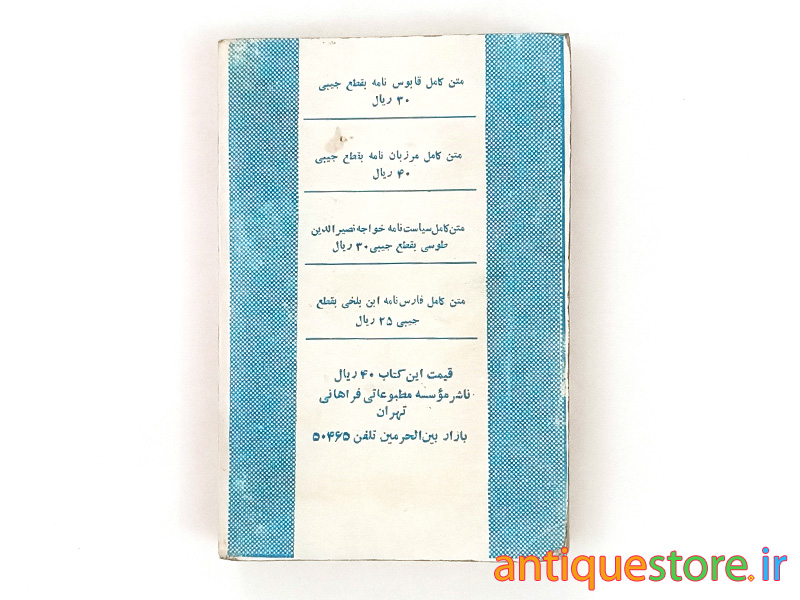 متن کامل قابوس نامه بقطع جیبی
۳۰ ریال
متن کامل مرزبان نامه بقطع جیبی
۴۰ ریال
متن کامل سیاست نامه خواجه نصیر الدین
طوسی بقطع جیبی ۳۰ ریال
متن کامل فارس نامه ابن بلخی بقطع
جیبی ۲۵ ریال
قیمت این کتاب ۴۰ ریال
ناشر مؤسسه مطبوعاتی فراهانی
تهران
بازار بین‌الحرمین تلفن ۵۰۴۶۵
antiquestore.ir